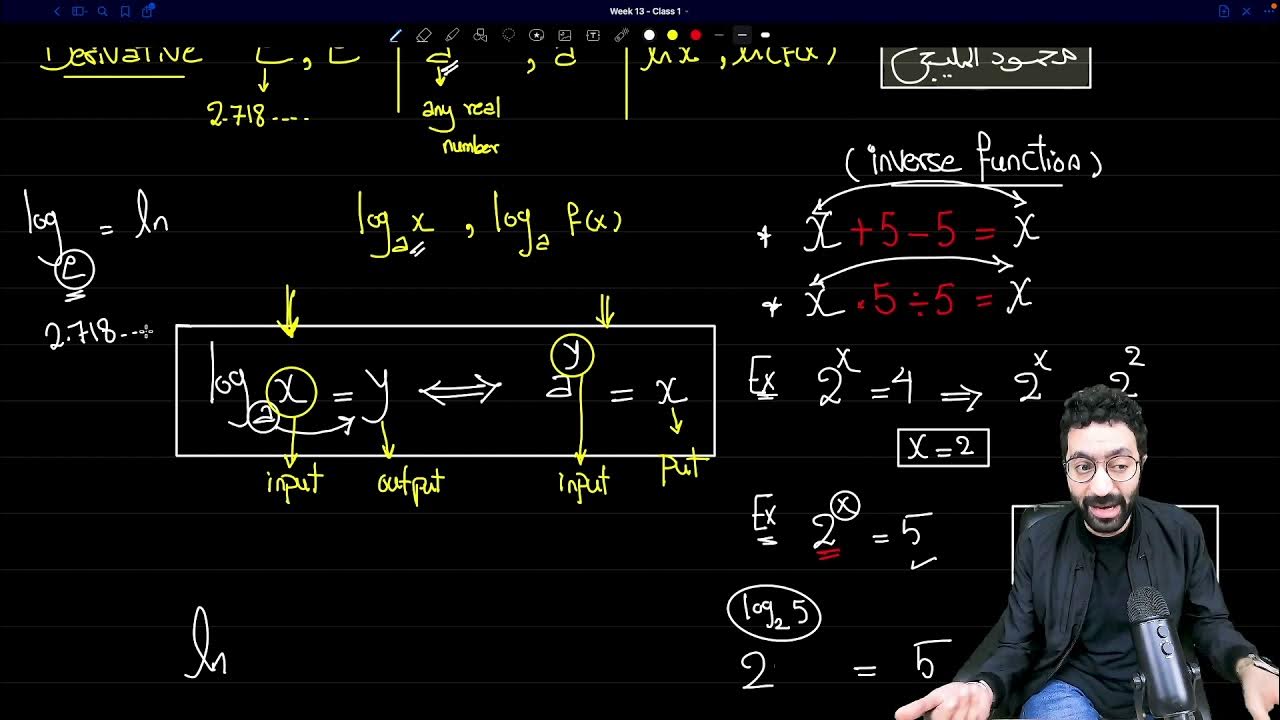 Week 13 - Class 1
Derivative
ln x , ln f(x)
محمود المليجي
2.718....
any real
number
(inverse function)
log_e = ln
log_a x , log_a f(x)
* x + 5 - 5 = x
* x . 5 ÷ 5 = x
2.718...
log_a x = y ⟺ a^y = x
input
output
input
put
Ex 2^x = 4 ⟹ 2^x 2^2
x = 2
Ex 2^x = 5
log_2 5
2 = 5
ln